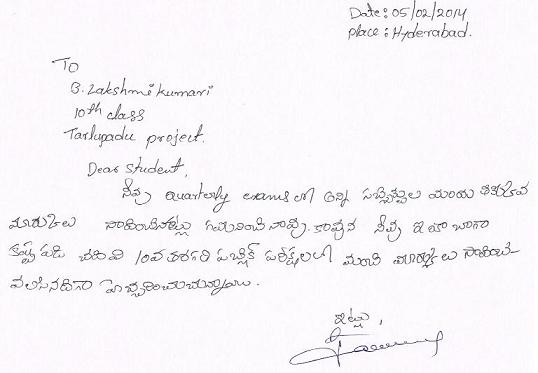 Date: 05/02/2014
place: Hyderabad.
To
B. Lakshmi kumari
10th class
Tarlupadu project.
Dear Student,
నీవు quarterly exams లో అన్ని సబ్జెక్టుల యందు
మార్కులు సాధించినట్లు గమనించినాము. కావున నీవు ఇంకా బాగా
కష్టపడి చదివి 10వ తరగతి పబ్లిక్ పరీక్షలలో మంచి మార్కులు సాధించ
వలసినదిగా హెచ్చరించుచున్నాము.
ఇట్లు,